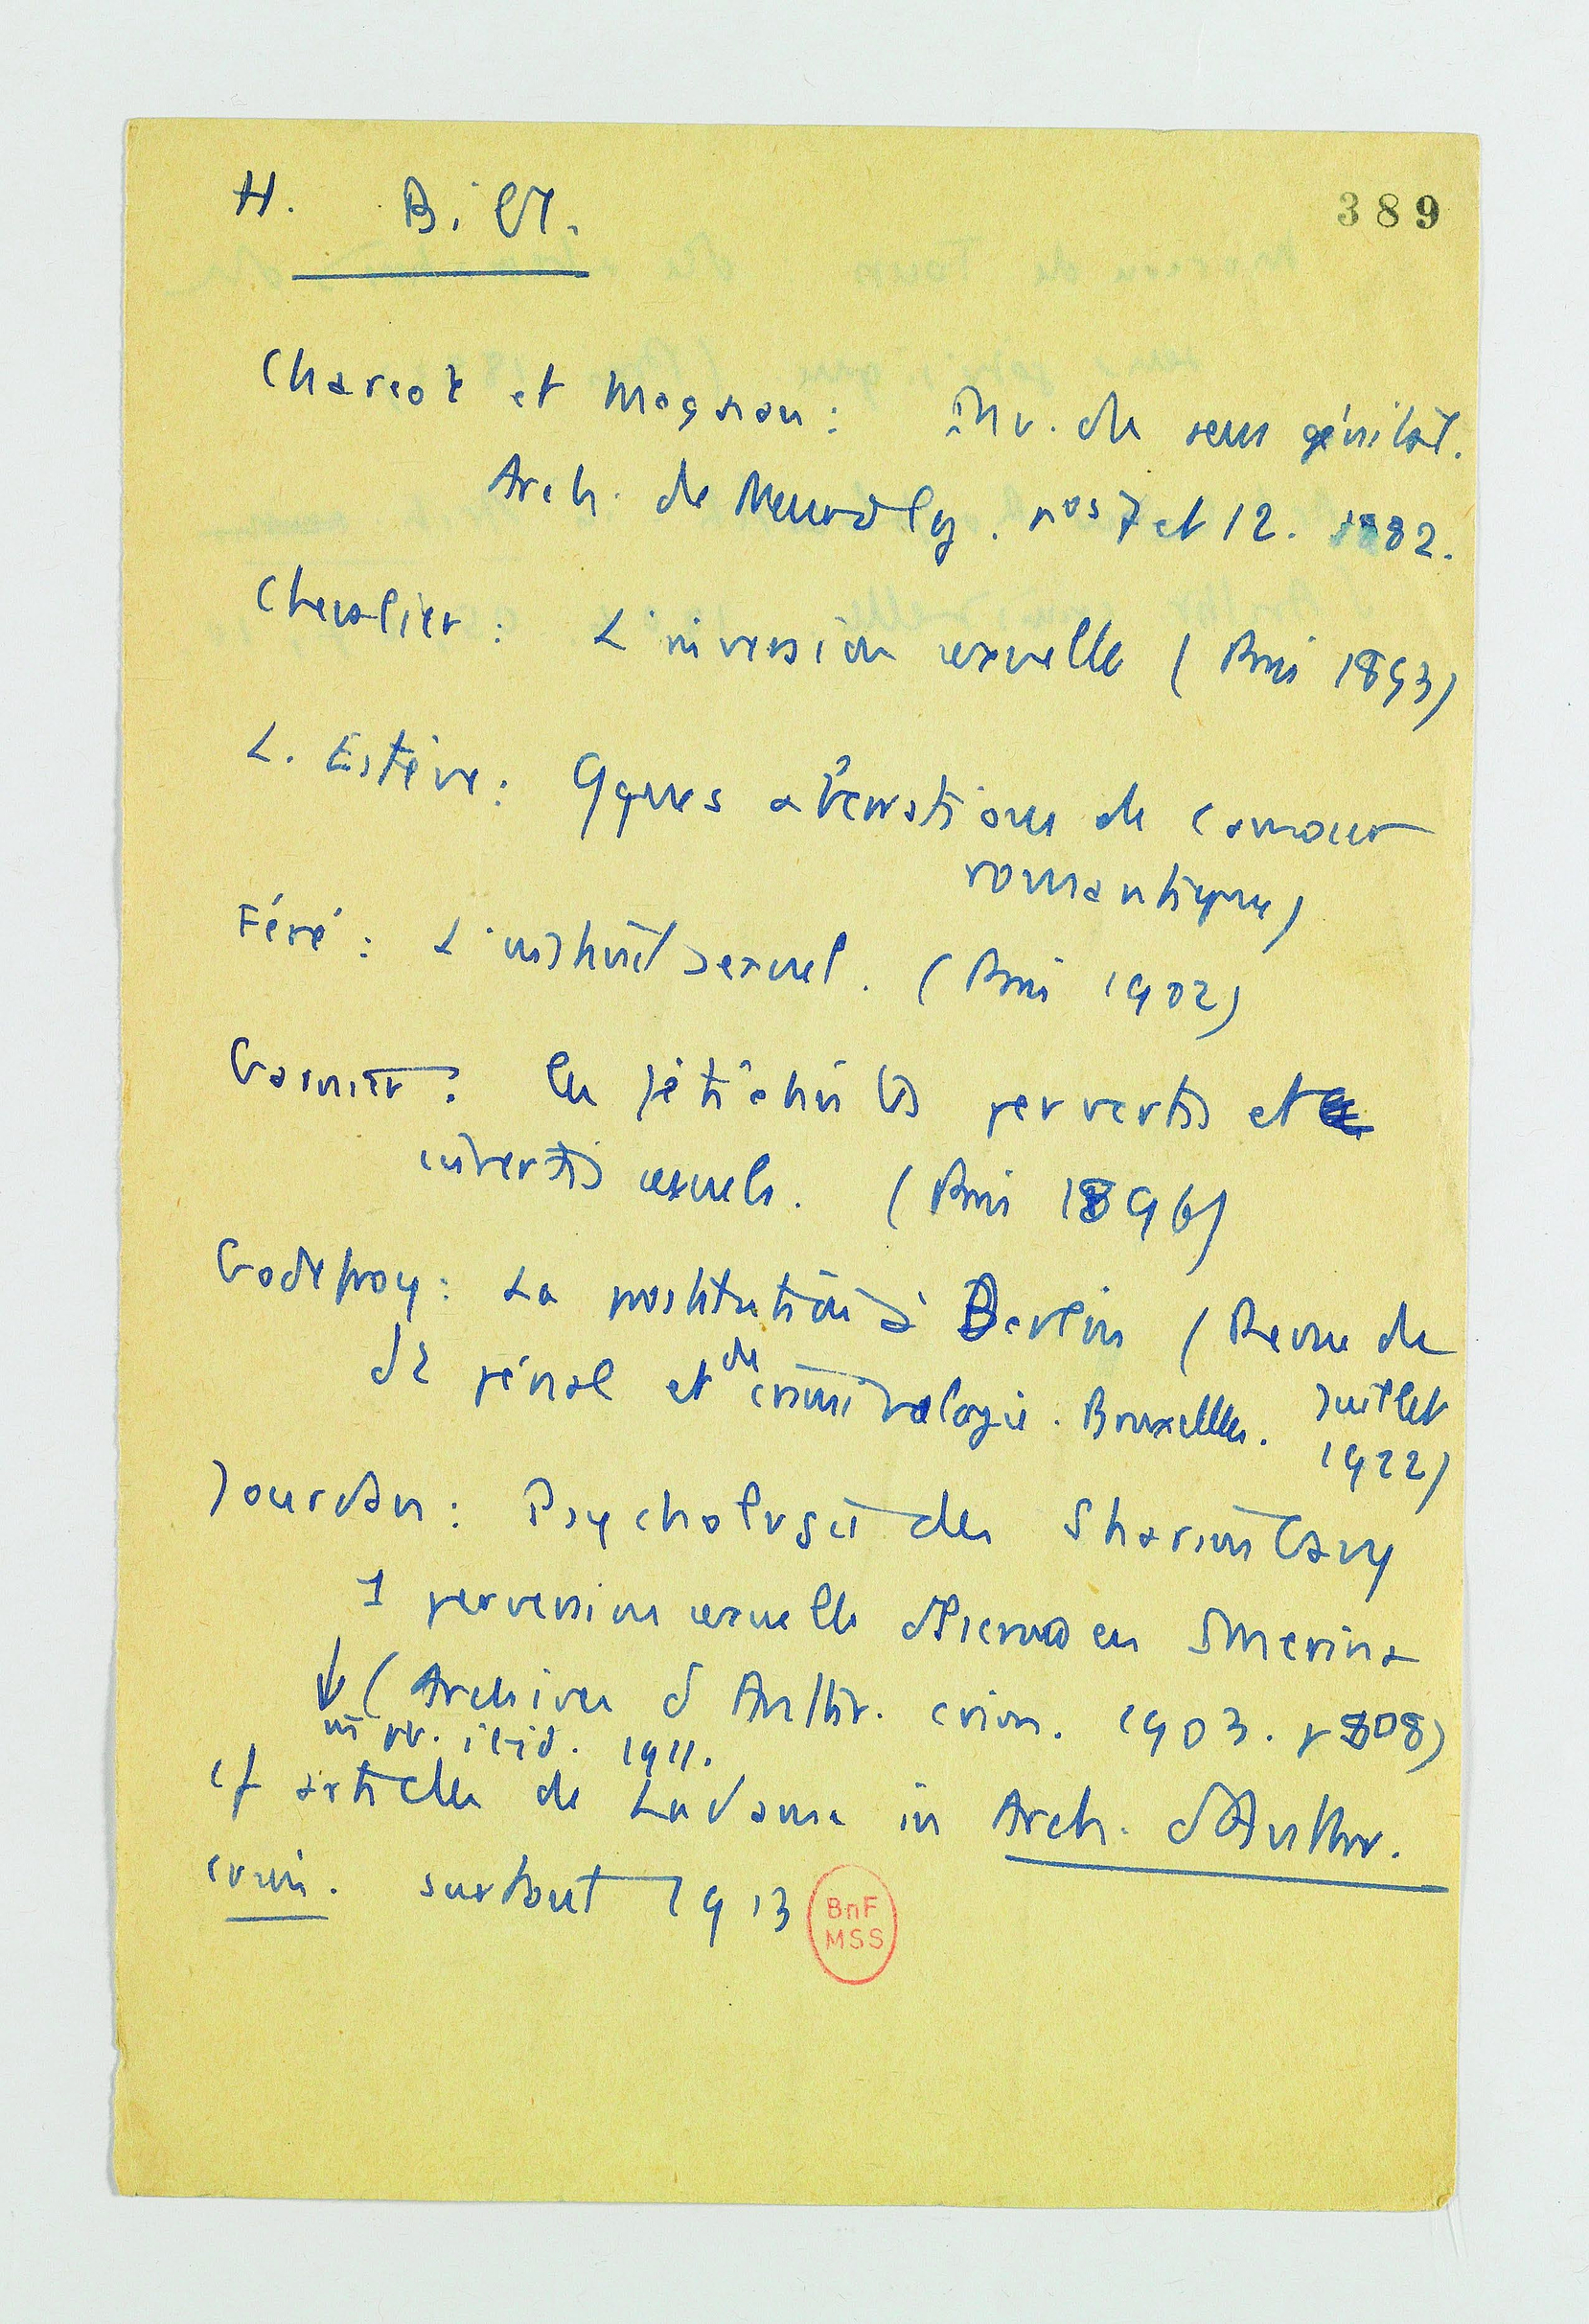 H. Bibl.
389
Charcot et Magnan : Inv. du sens génital.
Arch. de Neurolog. nos 7 et 12. 1882.
Chevalier : L'inversion sexuelle (Paris 1893)
L. Estève : Qques aberrations de l'amour
romantique)
Féré : L'instinct sexuel. (Paris 1902)
Garnier : Les fétichistes pervertis et
invertis sexuels. (Paris 1896)
Godefroy : La prostitution à Berlin (Revue de
dt pénal et de criminologie. Bruxelles. Juillet
1922)
Jourdan : Psychologie des
1 perversion sexuelle
(Archives d'Anthr. crim. 1903. p 808)
ibid. 1911.
cf articles de Ladame in Arch. d'Anthr.
crim. surtout 1913
BnF
MSS